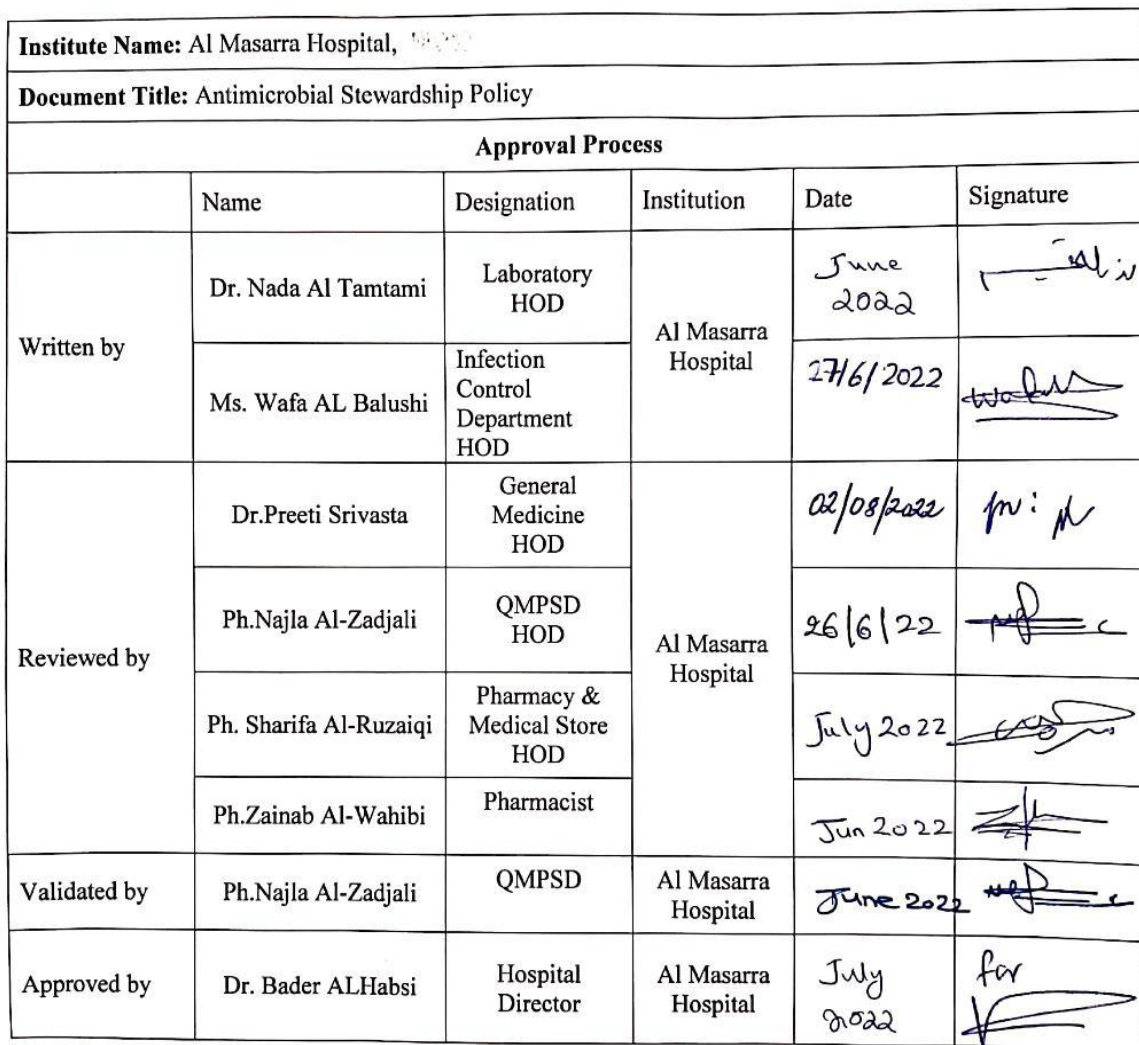 Institute Name: Al Masarra Hospital,
Document Title: Antimicrobial Stewardship Policy
Approval Process
Name Designation Institution Date Signature
Written by
Dr. Nada Al Tamtami
Laboratory
HOD
Al Masarra
Hospital
June
2022
Ms. Wafa AL Balushi
Infection
Control
Department
HOD
27/6/2022
Reviewed by
Dr.Preeti Srivasta
General
Medicine
HOD
Al Masarra
Hospital
02/08/2022
Ph.Najla Al-Zadjali
QMPSD
HOD
26/6/22
Ph. Sharifa Al-Ruzaiqi
Pharmacy &
Medical Store
HOD
July 2022
Ph.Zainab Al-Wahibi
Pharmacist
Jun 2022
Validated by
Ph.Najla Al-Zadjali
QMPSD
Al Masarra
Hospital
June 2022
Approved by
Dr. Bader ALHabsi
Hospital
Director
Al Masarra
Hospital
July
2022
for